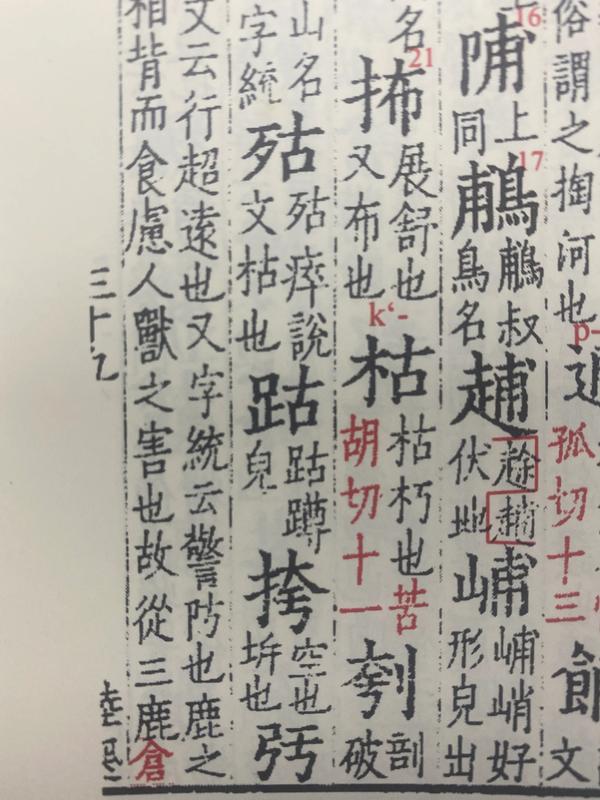 俗謂之掏河也
p-
孤切十三
文
16
陠上同
17
鵏鵏叔鳥名
伏地
峬峬峭好形皃出
名
21
抪展舒也又布也
k‘-
枯枯朽也苦胡切十一
刳剖破
山名字統
㱠㱠瘁說文枯也
跍跍蹲皃
挎空也
也
弙
文云行超遠也又字統云警防也鹿之
相背而食慮人獸之害也故從三鹿倉
三十九